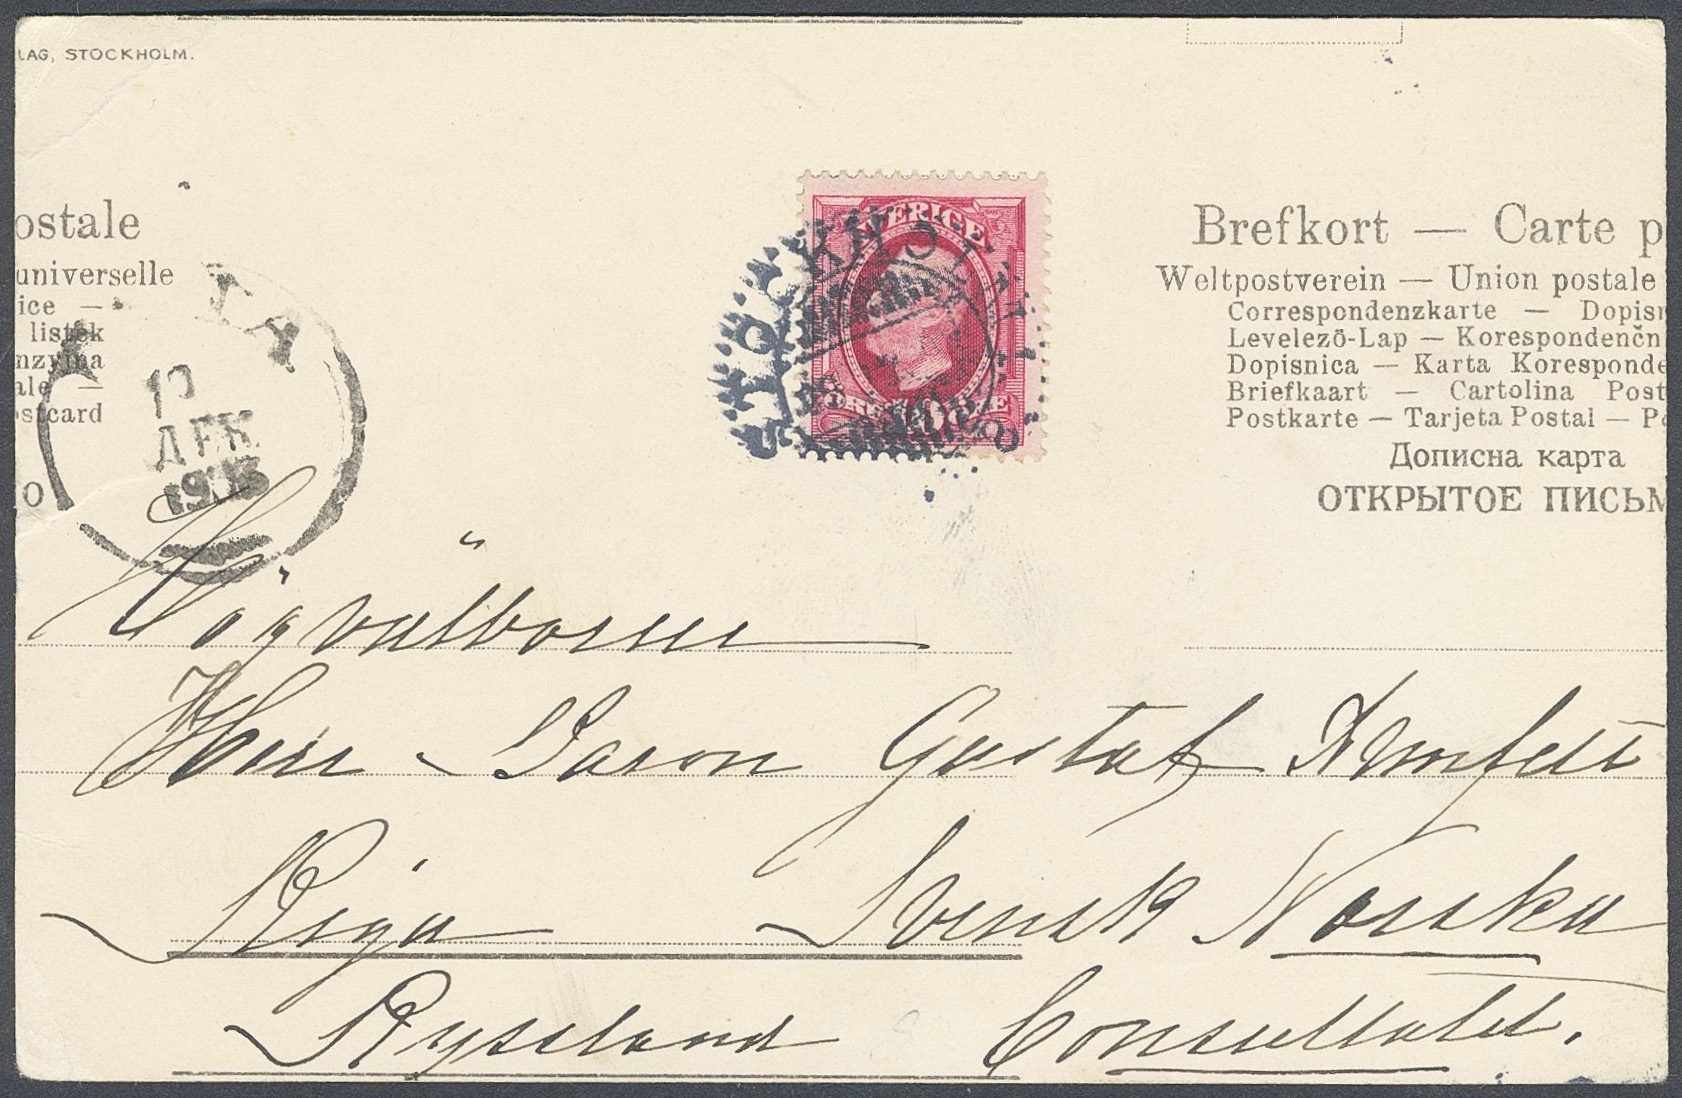 LAG, STOCKHOLM.
ostale
universelle
ice —
listek
nzyjna
ale —
ostcard
O
10
ДЕК
1903
SVERIGE
STOCKHOL
Brefkort — Carte p
Weltpostverein — Union postale
Correspondenzkarte — Dopisn
Levelezö-Lap — Korespondenčn
Dopisnica — Karta Koresponde
Briefkaart — Cartolina Post
Postkarte — Tarjeta Postal — Po
Дописна карта
ОТКРЫТОЕ ПИСЬМ
Högvälborne
Herr Baron Gustaf
Riga Svensk Norska
Ryssland Consullatet.